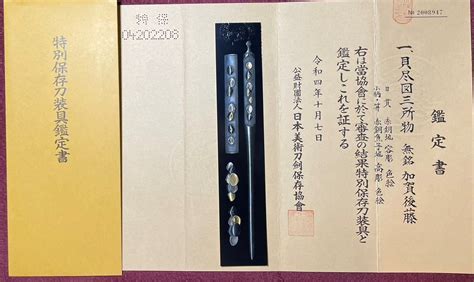 №
鑑定書
一、貝尽図三所物 無銘 加賀後藤
目貫 赤銅地 容彫 色絵
小柄・笄 赤銅魚子地 高彫 色絵
右は當協會に於て審査の結果特別保存刀装具と
鑑定しこれを証する
令和四年十月七日
公益財団法人 日本美術刀剣保存協會
特保
04202208
特別保存刀装具鑑定書